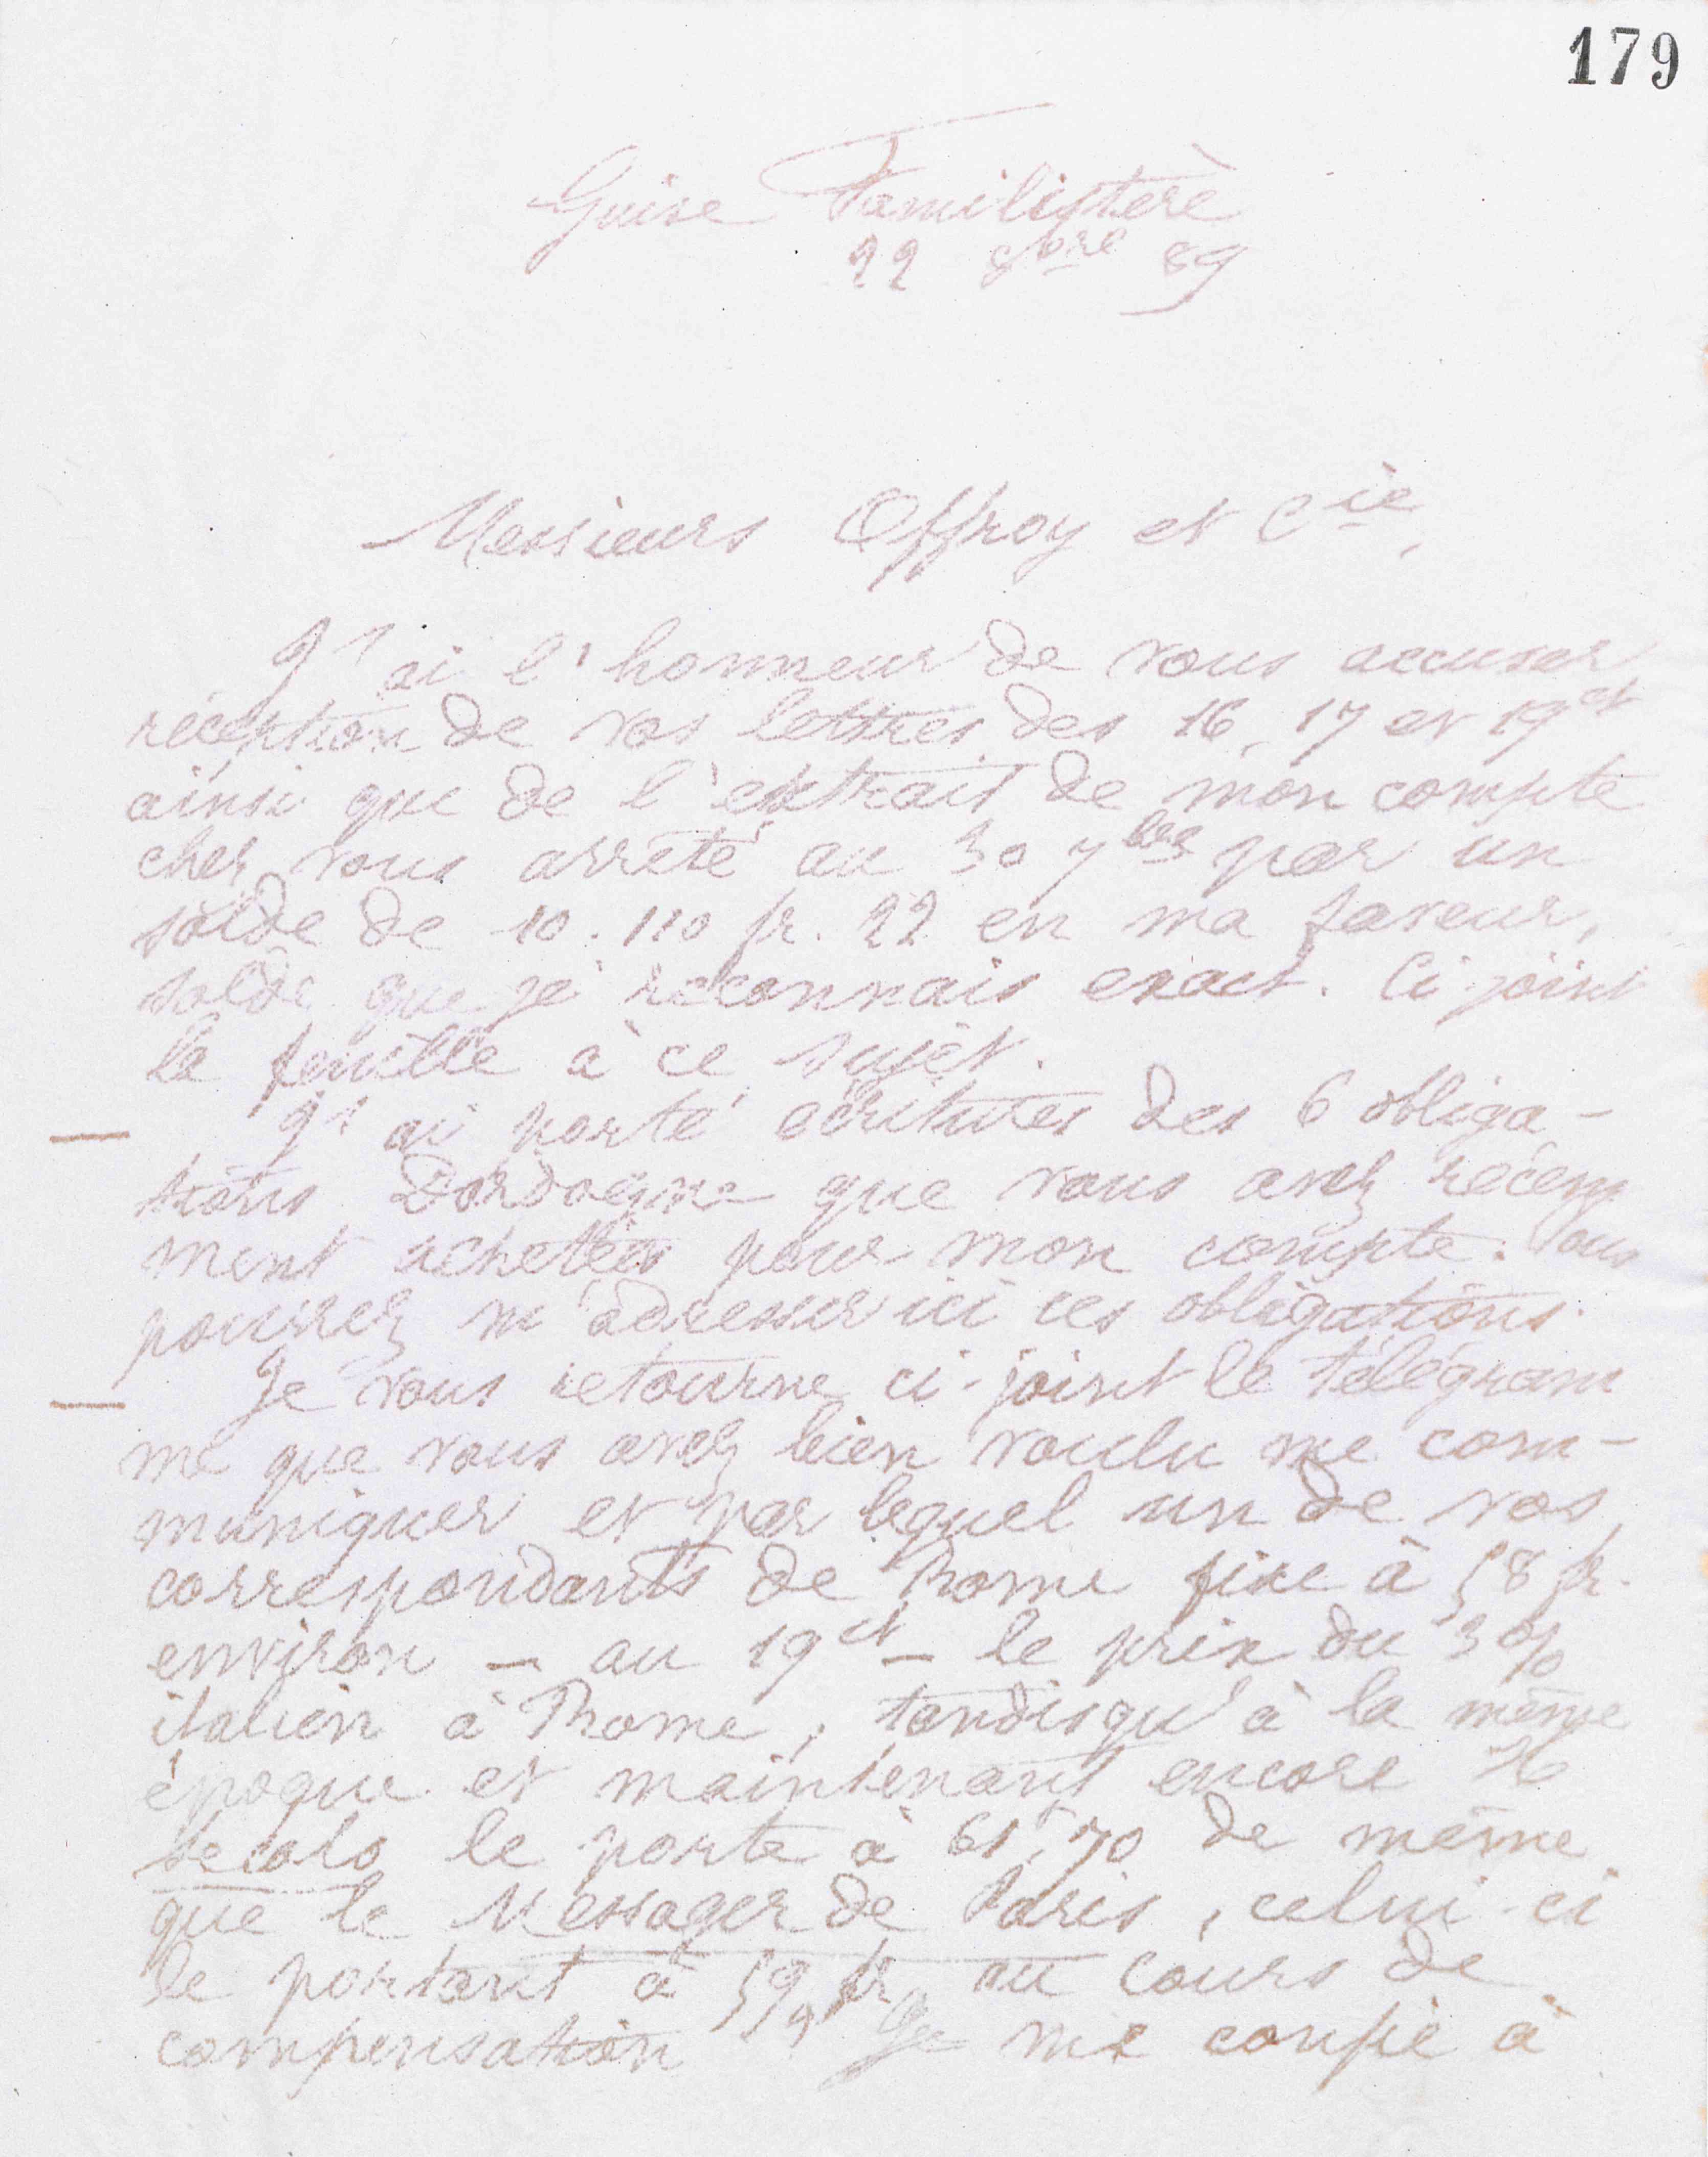 179
Guise Familistère
22 8bre 89
Messieurs Offroy et Cie,
J'ai l'honneur de vous accuser
réception de vos lettres des 16, 17 et 19 ct
ainsi que de l'extrait de mon compte
chez vous arrêté au 30 7bre par un
solde de 10.110 fr. 22 en ma faveur,
solde que je reconnais exact. Ci-joint
la feuille à ce sujet.
— J'ai porté écritures des 6 obliga-
tions Dordogne que vous avez récem
ment achetées pour mon compte. Vous
pourrez m'adresser ici ces obligations.
— Je vous retourne ci-joint le télégram
me que vous avez bien voulu me com-
muniquer et par lequel un de vos
correspondants de Rome fixe à 58 fr.
environ — au 19 ct — le prix du 3 %
italien à Rome, tandisqu'à la même
époque et maintenant encore Il
Secolo le porte à 61f,70 de même
que le Messager de Paris, celui-ci
le portant à 59 fr au cours de
compensation. Je me confie à